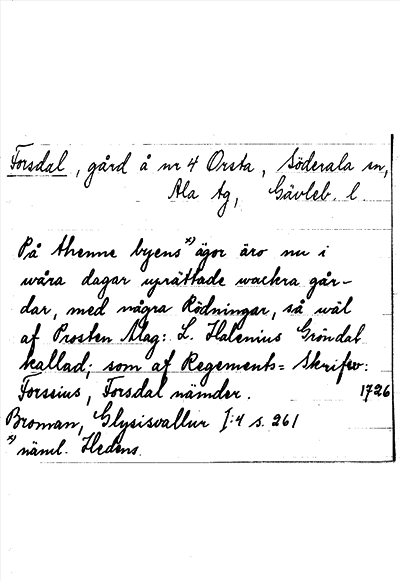 Forsdal, gård å nr 4 Orsta, Söderala sn,
Ala tg, Gävleb. l.
På thenne byens x) ägor äro nu i
wåra dagar uprättade wackra går-
dar, med några Rödningar, så wäl
af Prosten Mag: L. Halenius Gröndal
kallad; som af Regements= Skrifw:
Forssius, Forsdal nämder. 1726
Broman, Glysisvallur I:4 s. 261
x) näml. Hedens.